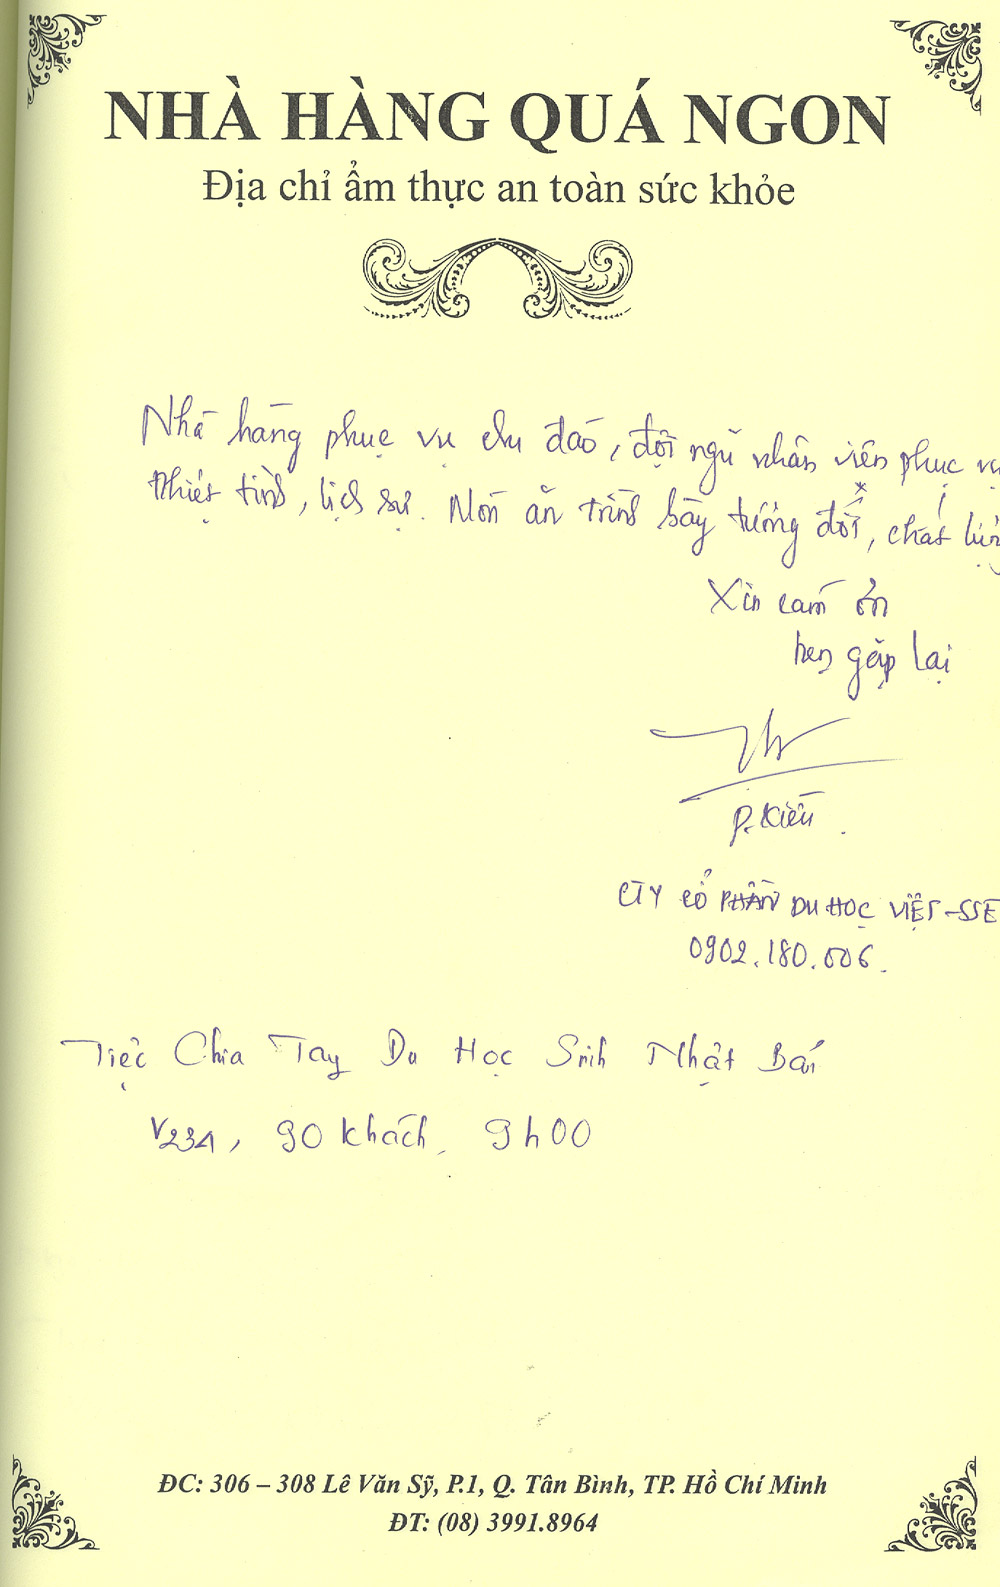 NHÀ HÀNG QUÁ NGON
Địa chỉ ẩm thực an toàn sức khỏe
Nhà hàng phục vụ chu đáo, đội ngũ nhân viên phục vụ
nhiệt tình, lịch sự. Món ăn trình bày tương đối, chất lượng
Xin cám ơn
hẹn gặp lại
P. Kiều
CTY CỔ PHẦN DU HỌC VIỆT-SSE
0902.180.006.
Tiệc Chia Tay Du Học Sinh Nhật Bản
V23A, 90 khách, 9h00
ĐC: 306 – 308 Lê Văn Sỹ, P.1, Q. Tân Bình, TP. Hồ Chí Minh
ĐT: (08) 3991.8964